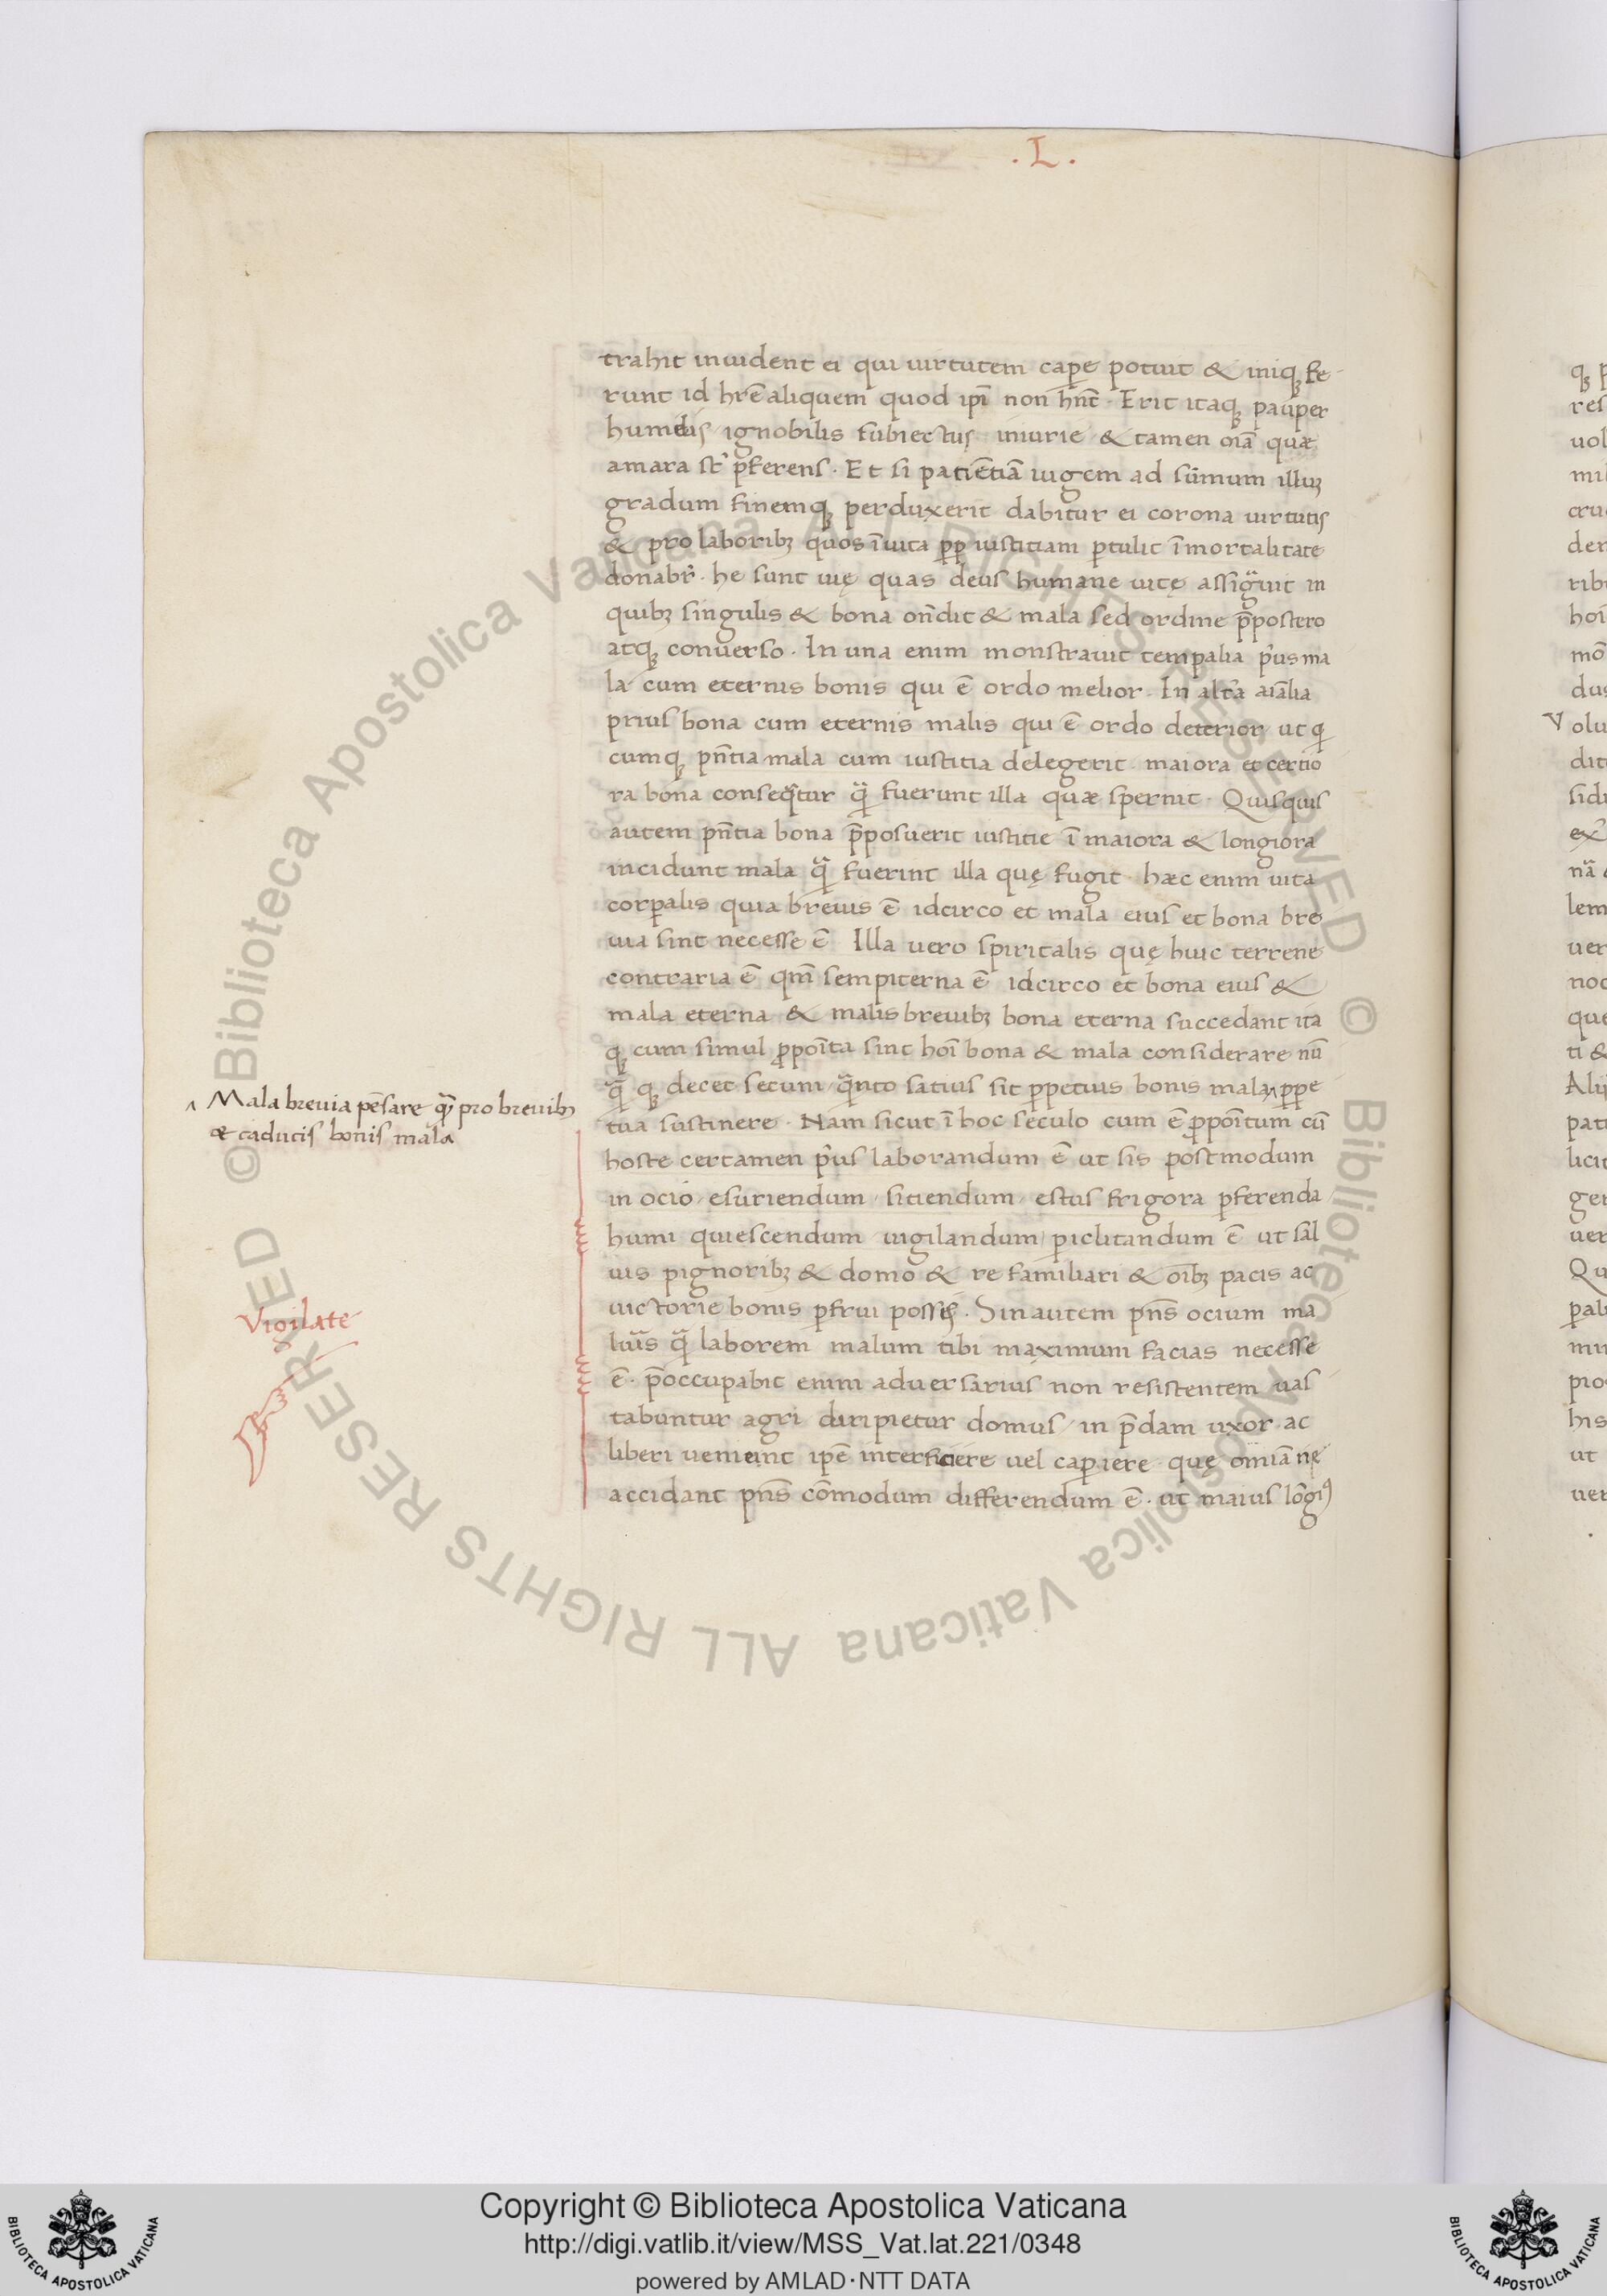 .L.
trahit inuident ei qui uirtutem cap̲e potuit & iniqꝫ fe
runt id hr̄e aliquem quod ip̄i non hn̄t. Erit itaqꝫ pauper
humilis ignobilis subiectus iniurie & tamen oı̄a quæ
amara st̄ ꝑferens. Et si patiētiā iugem ad sūmum illuꝫ
gradum finemqꝫ perduxerit dabitur ei corona uirtutis
& pro laboribꝫ quos ī uita ꝓꝑ iustitiam ꝑtulit īmortalitate
donabr̄. he sunt uię quas deus humane uitę assiguit in
quibꝫ singulis & bona on̄dit & mala sed ordine p̄postero
atqꝫ conuerso. In una enim monstrauit temꝑalia p̓us ma
la cum eternis bonis qui ē ordo melior. In alt̓a aīalia
prius bona cum eternis malis qui ē ordo deterior ut q̲
cumqꝫ pn̄tia mala cum iustitia delegerit maiora et certio
ra bona conseq̄tur q̄ fuerunt illa quæ spernit. Quisquis
autem pn̄tia bona p̄posuerit iustitie ī maiora & longiora
incidunt mala q̄ fuerint illa quę fugit. hæc enim uita
corꝑalis quia breuis ē idcirco et mala eius et bona bre
uia sint necesse ē Illa uero spiritalis quę huic terrene
contraria ē qm̄ sempiterna ē idcirco et bona eius &
mala eterna & malis breuibꝫ bona eterna succedant ita
qꝫ cum simul ꝓpoīta sint hoī bona & mala considerare nū
q̄ qꝫ decet secum q̄nto satius sit ꝑpetuis bonis mala ꝑpe
Mala breuia pēsare q̄ pro breuibꝫ
& caducis bonis mala
tua sustinere. Nam sicut ī hoc seculo cum ē ꝓpoītum cū
hoste certamen p̓us laborandum ē ut sis postmodum
in ocio esuriendum sitiendum estus frigora ꝑferenda
humi quiescendum uigilandum ꝑiclitandum ē ut sal
uis pignoribꝫ & domo & re familiari & oībꝫ pacis ac
uictorie bonis ꝑfrui possis. Sin autem pn̄s ocium ma
Vigilate
luis q̄ laborem malum tibi maximum facias necesse
ē. p̄occupabit enim aduersarius non resistentem uas
tabuntur agri diripietur domus in p̄dam uxor ac
liberi uenient ip̄e interficiere uel capiere quę omīa ne
accidant pn̄s cōmodum differendum ē. ut maius lōgiꝰ
Copyright © Biblioteca Apostolica Vaticana
http://digi.vatlib.it/view/MSS_Vat.lat.221/0348
powered by AMLAD·NTT DATA